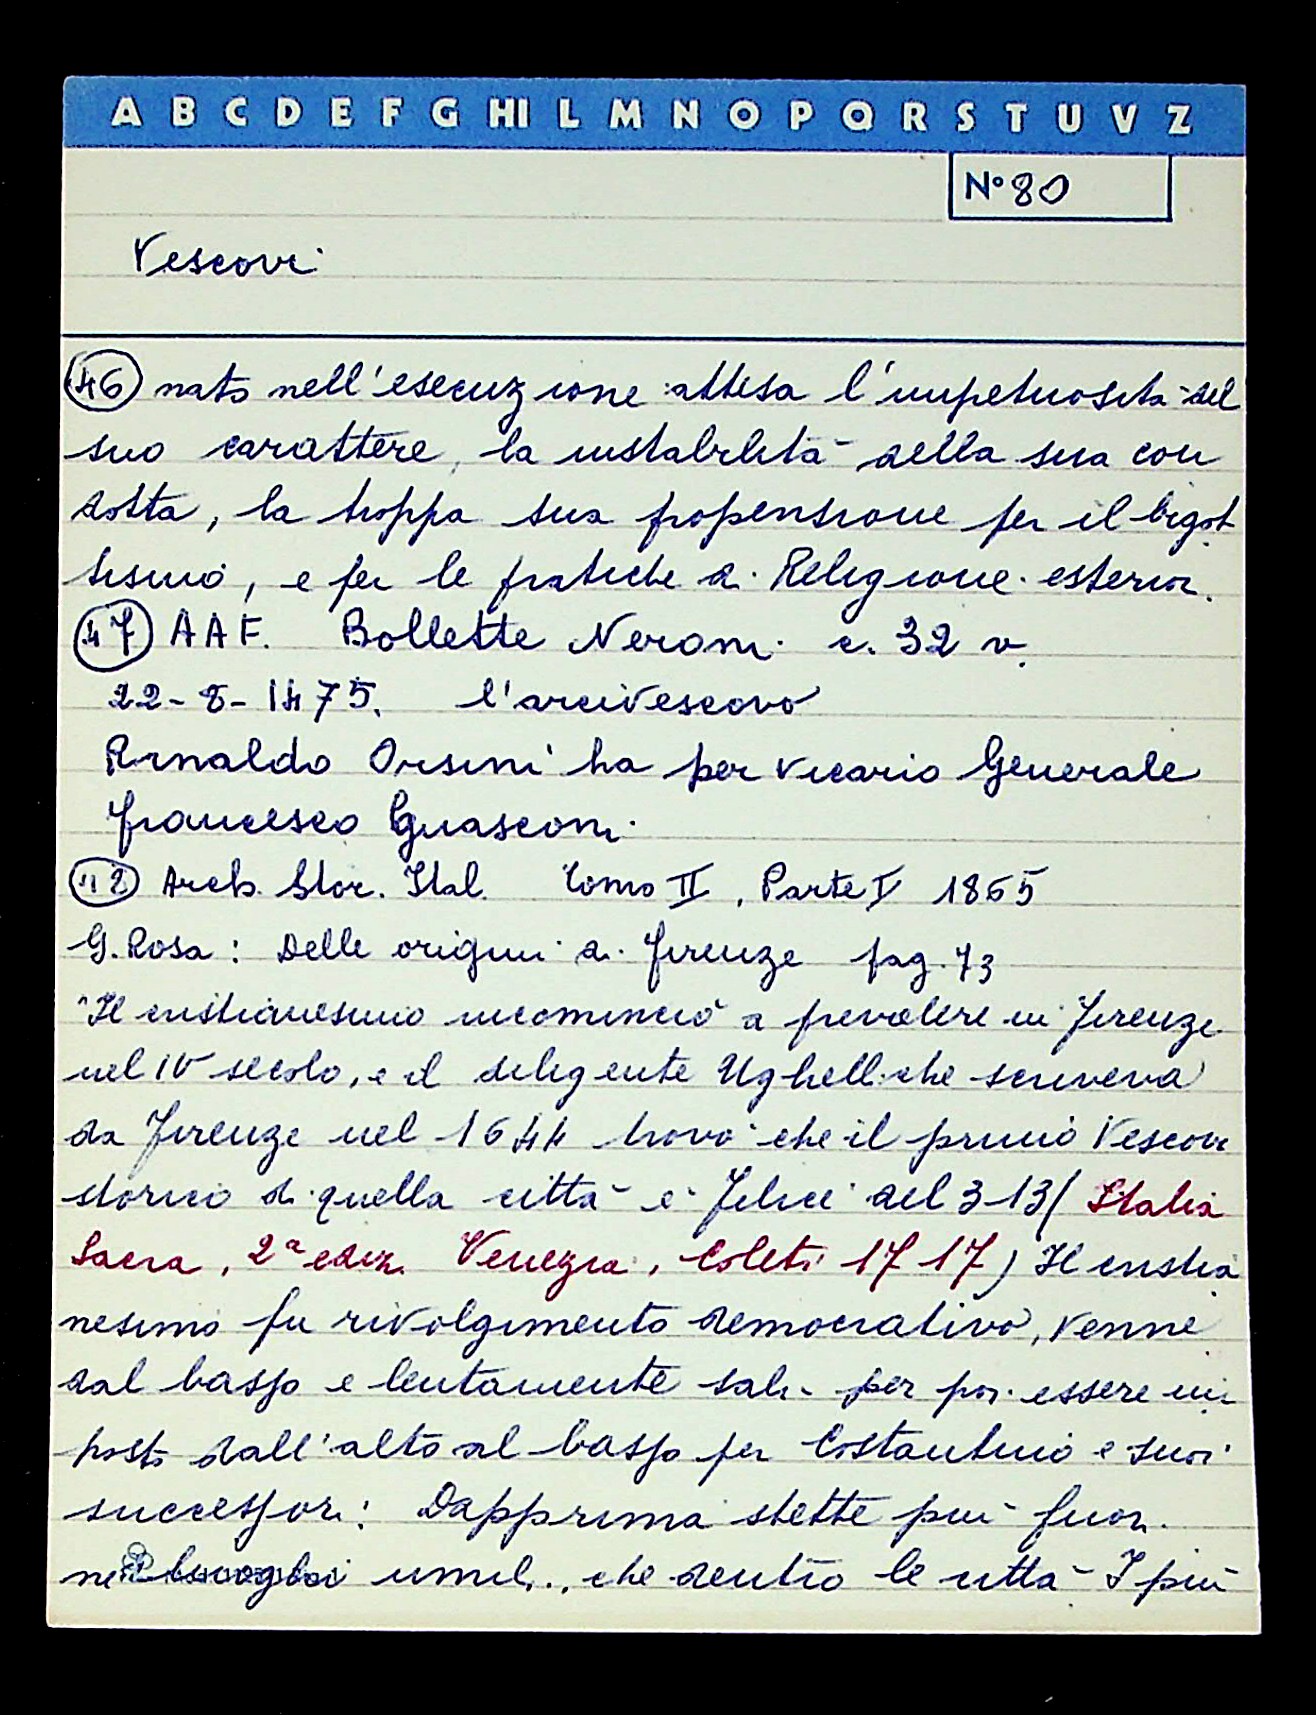 A B C D E F G HI L M N O P Q R S T U V Z
N° 80
Vescovi
46 nato nell'esecuzione attesa l'impetuosità del
suo carattere, la instabilità della sua con
dotta, la troppa sua propensione per il bigot
tismo, e per le pratiche di Religione esteriori.
47 A A F. Bollette Neroni c. 32 v.
22-8-1475. l'arcivescovo
Rinaldo Orsini ha per vicario Generale
Francesco Guasconi
Arch. Stor. Ital. Tomo II, Parte I 1865
G. Rosa: Delle origini di Firenze pag. 73
"Il cristianesimo incominciò a prevalere in Firenze
nel IV secolo, e il diligente Ughelli che scriveva
da Firenze nel 1644 trovò che il primo Vescovo
storico di quella città è Felice del 313 (Italia
Sacra, 2ª ediz. Venezia, Coleti 1717) Il cristia
nesimo fu rivolgimento democratico, venne
dal basso e lentamente salì per poi essere im
posto dall'alto al basso per Costantino e suoi
successori: Dapprima stette più fuori
nei luoghi umili, che dentro le città I più